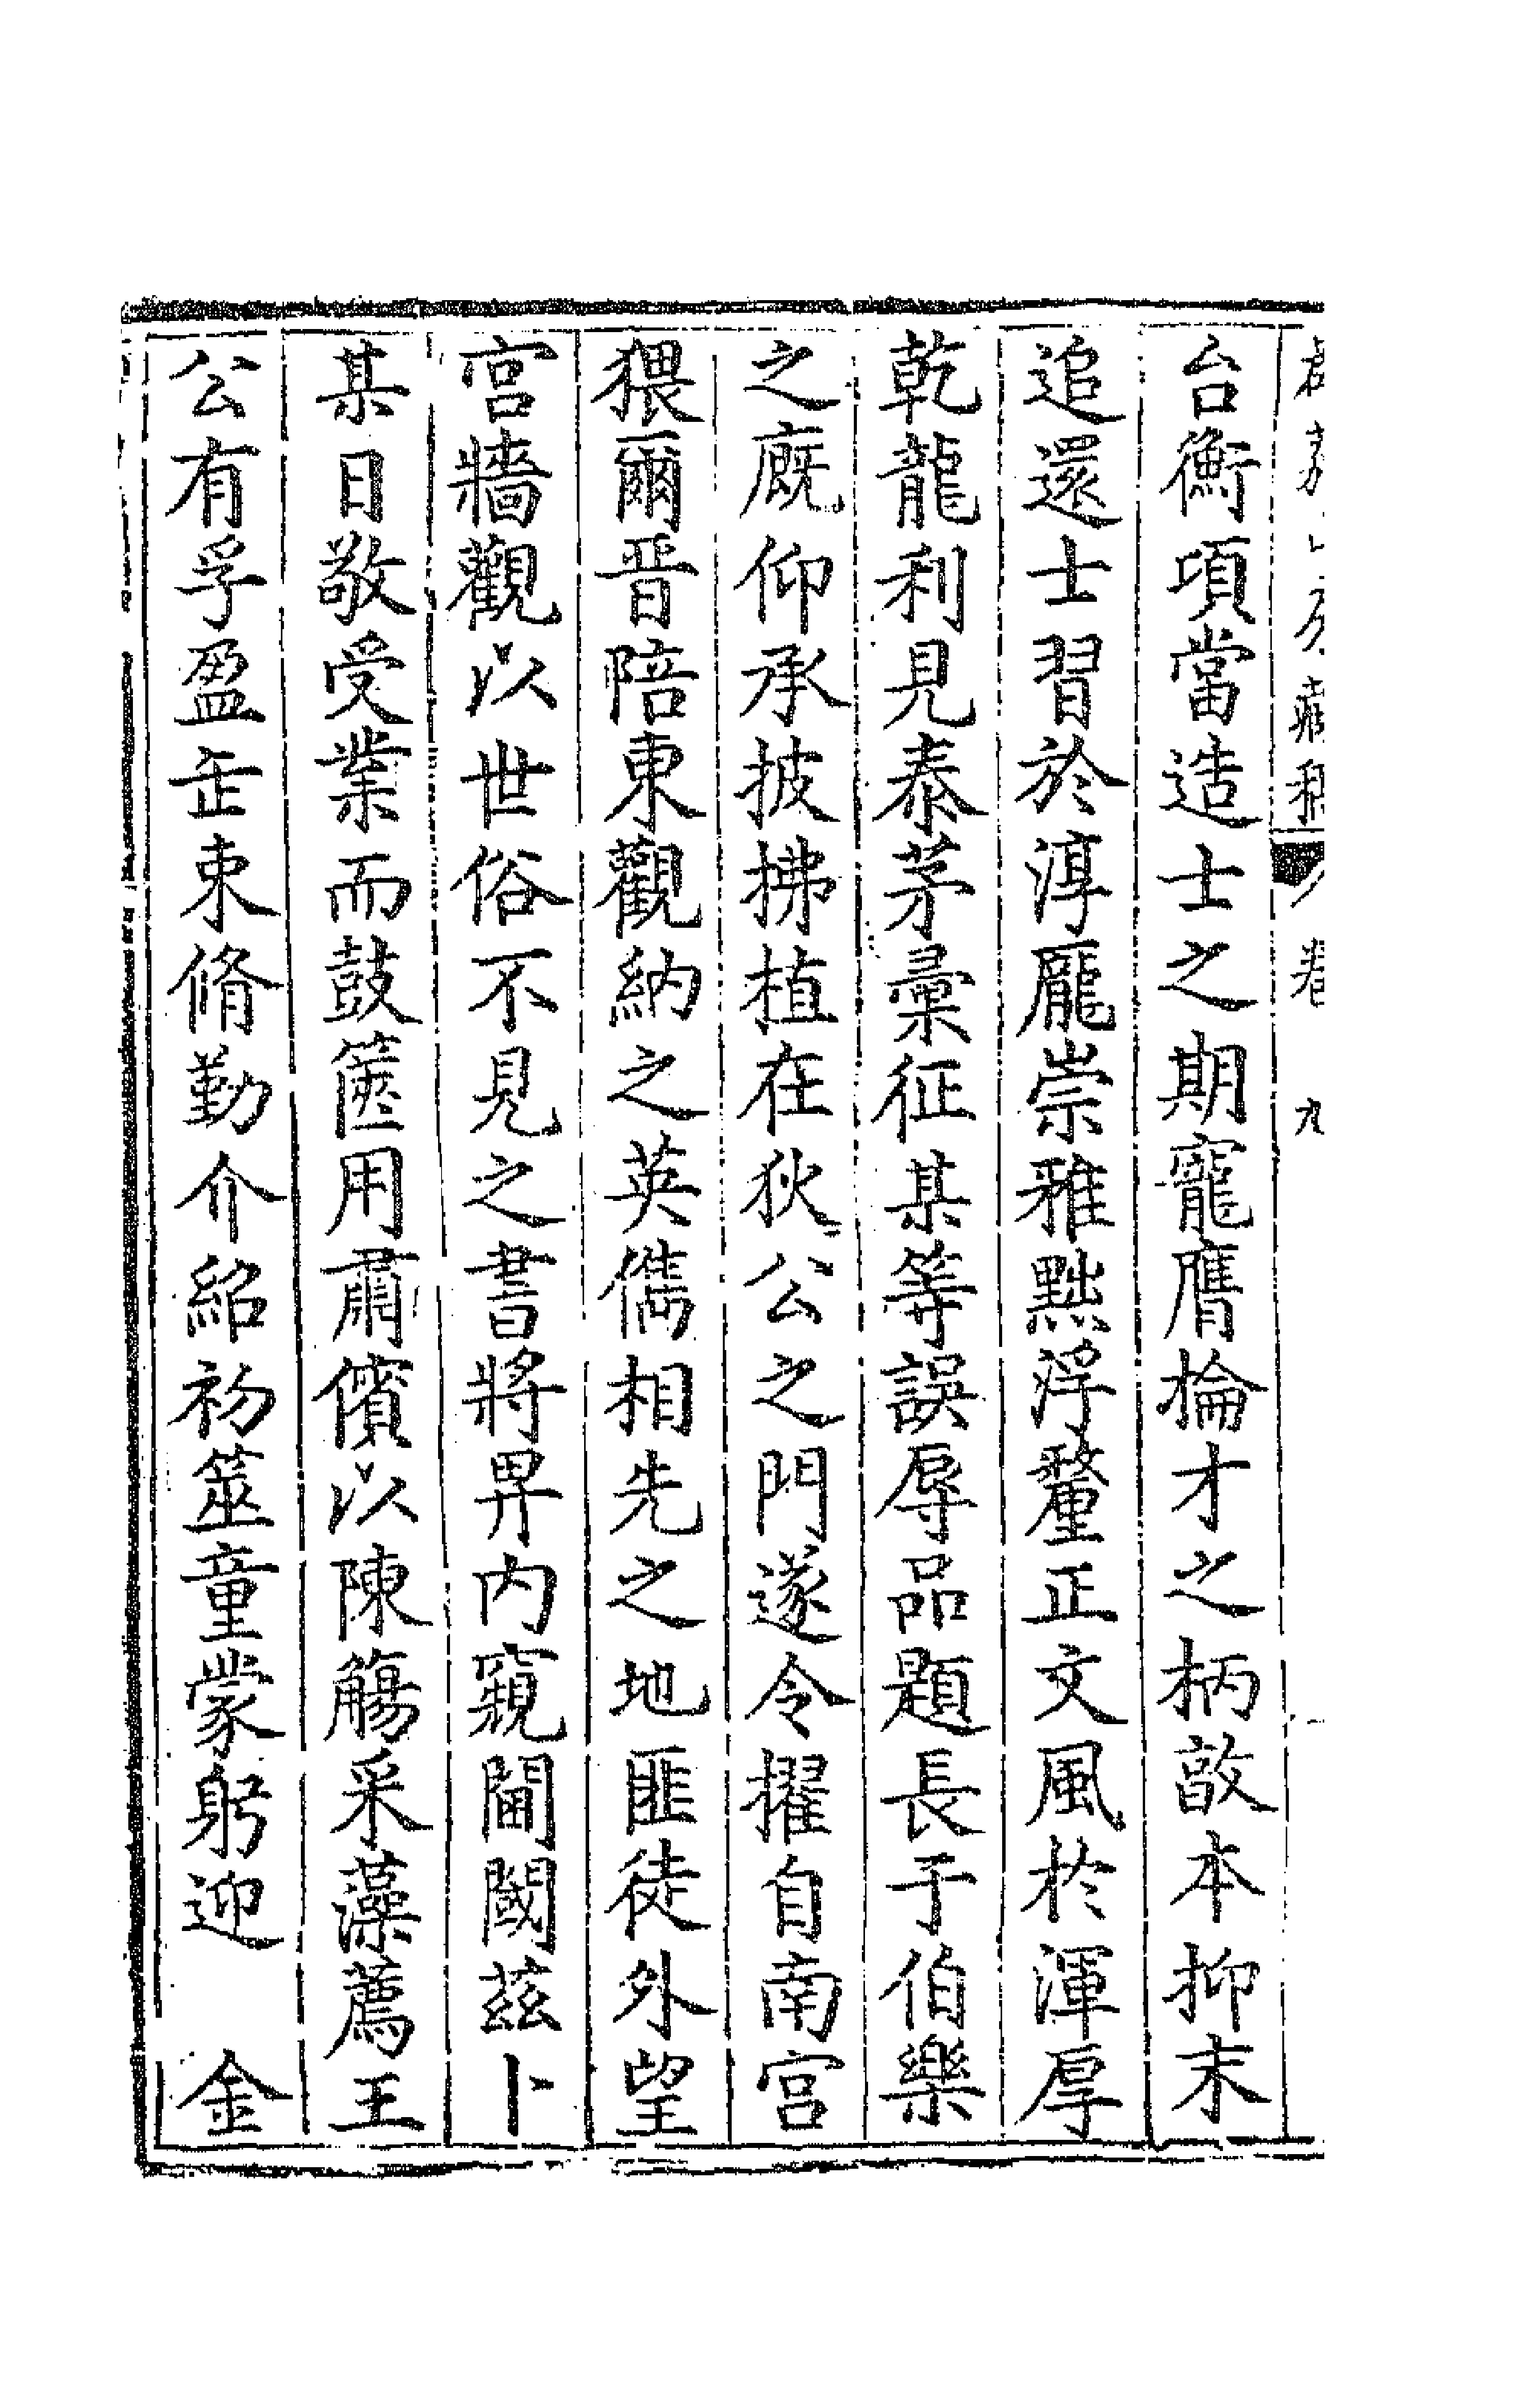 台衡項當造士之期寵膺掄才之柄敳本抑末
追還士習於淳龐崇雅黜浮釐正文風於渾厚
乾龍利見泰茅彙征某等誤辱品題長于伯樂
之廐仰承披拂植在狄公之門遂令擢自南宮
猥爾晉陪東觀納之英儁相先之地匪徒外望
宮牆觀以世俗不見之書將畀內窺閫閾茲卜
某日敬受業而鼓篋用肅儐以陳觴采藻薦王
公有孚盈缶束脩勤介紹初筮童蒙躬迎　金
藏稿　卷　九